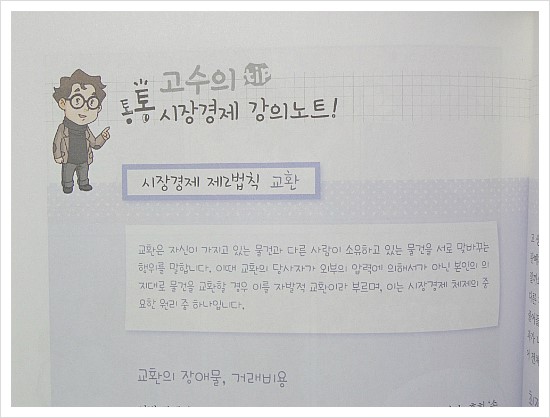 고수의
통통 시장경제 강의노트!
시장경제 제2법칙 교환
교환은 자신이 가지고 있는 물건과 다른 사람이 소유하고 있는 물건을 서로 맞바꾸는
행위를 말합니다. 이때 교환의 당사자가 외부의 압력에 의해서가 아닌 본인의 의
지대로 물건을 교환할 경우 이를 자발적 교환이라 부르며, 이는 시장경제 체제의 중
요한 원리 중 하나입니다.
교환의 장애물, 거래비용